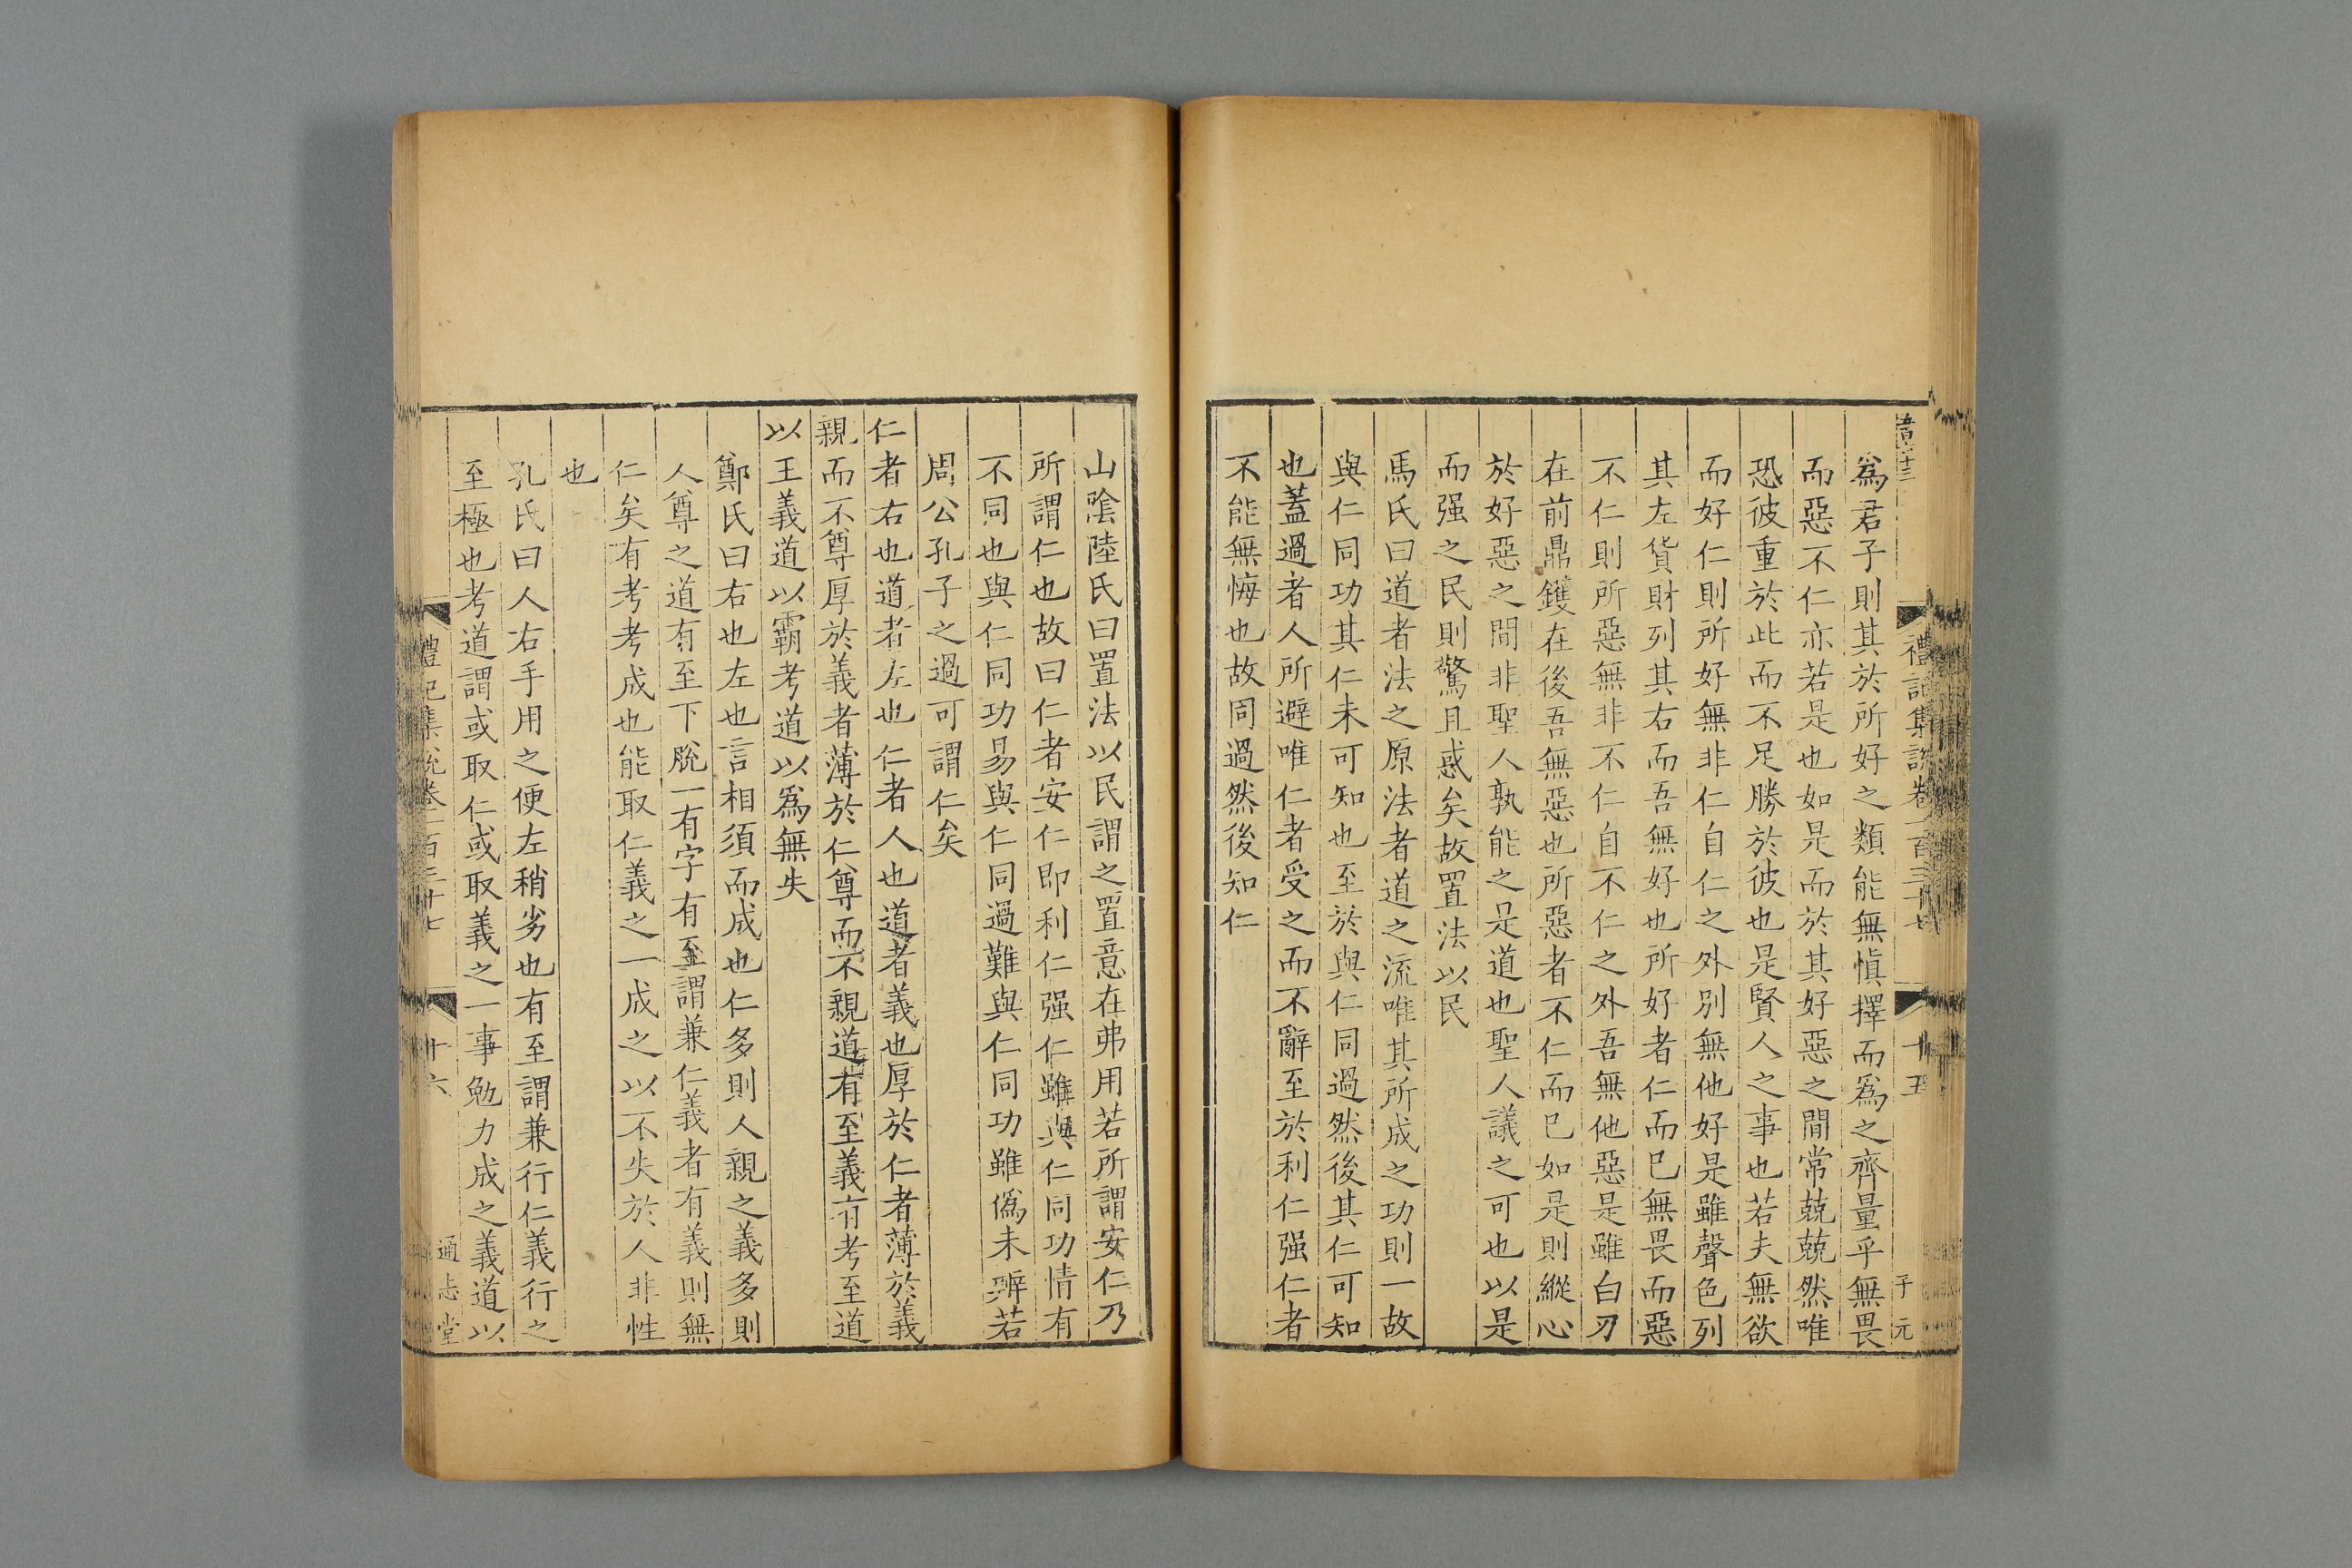 禮記集說卷一百三十七 十五
子元
爲君子則其於所好之類能無愼擇而爲之齊量乎無畏
而惡不仁亦若是也如是而於其好惡之間常兢兢然唯
恐彼重於此而不足勝於彼也是賢人之事也若夫無欲
而好仁則所好無非仁自仁之外別無他好是雖聲色列
其左貨財列其右而吾無好也所好者仁而已無畏而惡
不仁則所惡無非不仁自不仁之外吾無他惡是雖白刃
在前鼎鑊在後吾無惡也所惡者不仁而已如是則縱心
於好惡之間非聖人孰能之是道也聖人議之可也以是
而强之民則驚且惑矣故置法以民
馬氏曰道者法之原法者道之流唯其所成之功則一故
與仁同功其仁未可知也至於與仁同過然後其仁可知
也蓋過者人所避唯仁者受之而不辭至於利仁强仁者
不能無悔也故同過然後知仁
山陰陸氏曰置法以民謂之置意在弗用若所謂安仁乃
所謂仁也故曰仁者安仁即利仁强仁雖與仁同功情有
不同也與仁同功易與仁同過難與仁同功雖僞未辨若
周公孔子之過可謂仁矣
仁者右也道者左也仁者人也道者義也厚於仁者薄於義
親而不尊厚於義者薄於仁尊而不親道有至義有考至道
以王義道以霸考道以爲無失
鄭氏曰右也左也言相須而成也仁多則人親之義多則
人尊之道有至下脫一有字有至謂兼仁義者有義則無
仁矣有考考成也能取仁義之一成之以不失於人非性
也
孔氏曰人右手用之便左稍劣也有至謂兼行仁義行之
至極也考道謂或取仁或取義之一事勉力成之義道以
禮記集說卷一百三十七 十六
通志堂